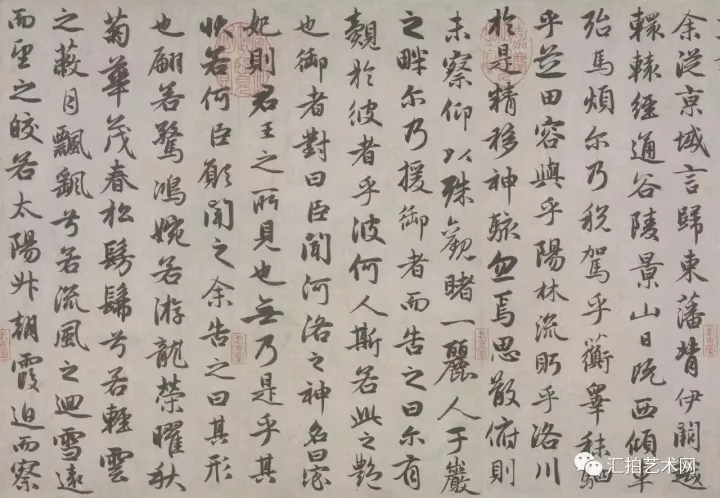 余從京域言歸東藩背伊闕越
轘轅經通谷陵景山日既西傾車
殆馬煩尔乃税駕乎蘅皋秣駟
乎芝田容與乎陽林流盻乎洛川
於是精移神駭忽焉思散俯則
未察仰以殊觀睹一麗人于巖
之畔尔乃援御者而告之曰尔有
覿於彼者乎彼何人斯若此之艷
也御者對曰臣聞河洛之神名曰宓
妃則君王之所見也無乃是乎其
狀若何臣願聞之余告之曰其形
也翩若驚鴻婉若游龍榮曜秋
菊華茂春松髣髴兮若輕雲
之蔽月飄颻兮若流風之迴雪遠
而望之皎若太陽升朝霞迫而察
汇拍艺术网